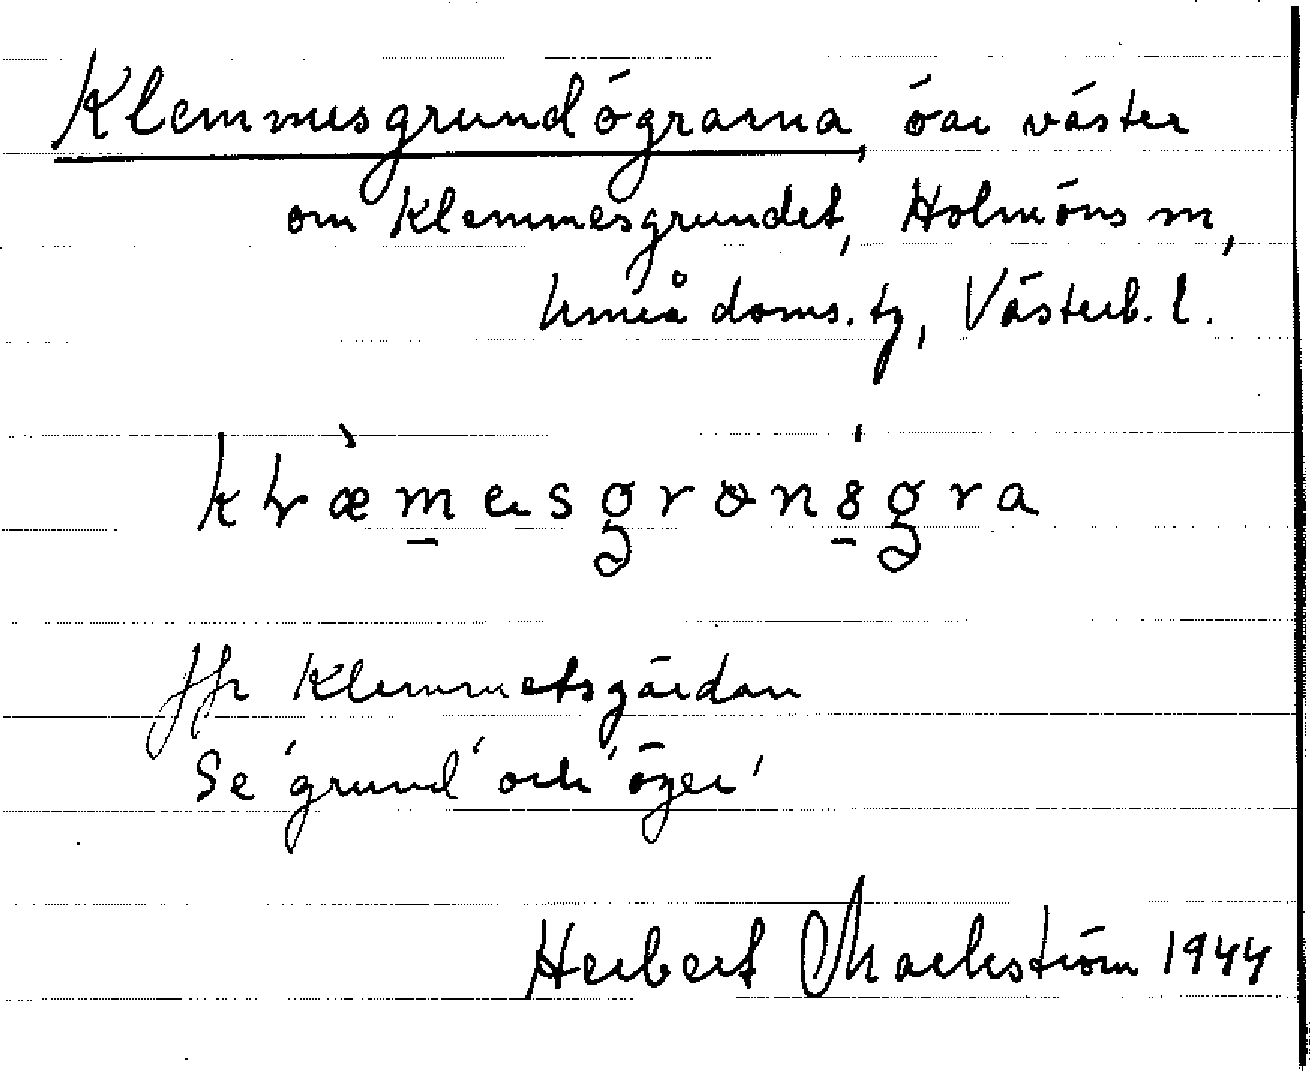 Klemmesgrundögrarna, öar väster
om Klemmesgrundet, Holmöns sn,
Umeå doms. tg, Västerb. l.
jfr Klemmetsgärdan
Se 'grund' och 'öger'
Herbert Markström 1944